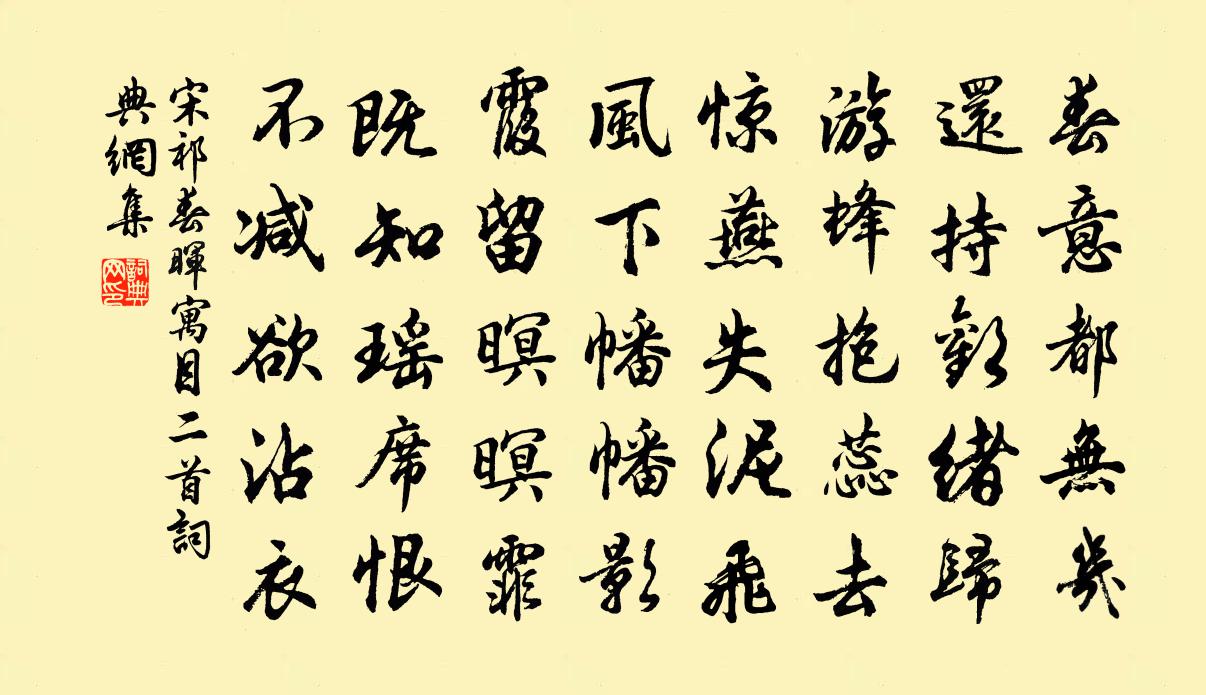 春意都無幾
還持歡緒歸
游蜂抱蕊去
惊燕失泥飛
風下幡幡影
霞留暝暝霏
既知瑶席恨
不减欲沾衣
宋祁春暉寓目二首詞
典網集
詞典
网印